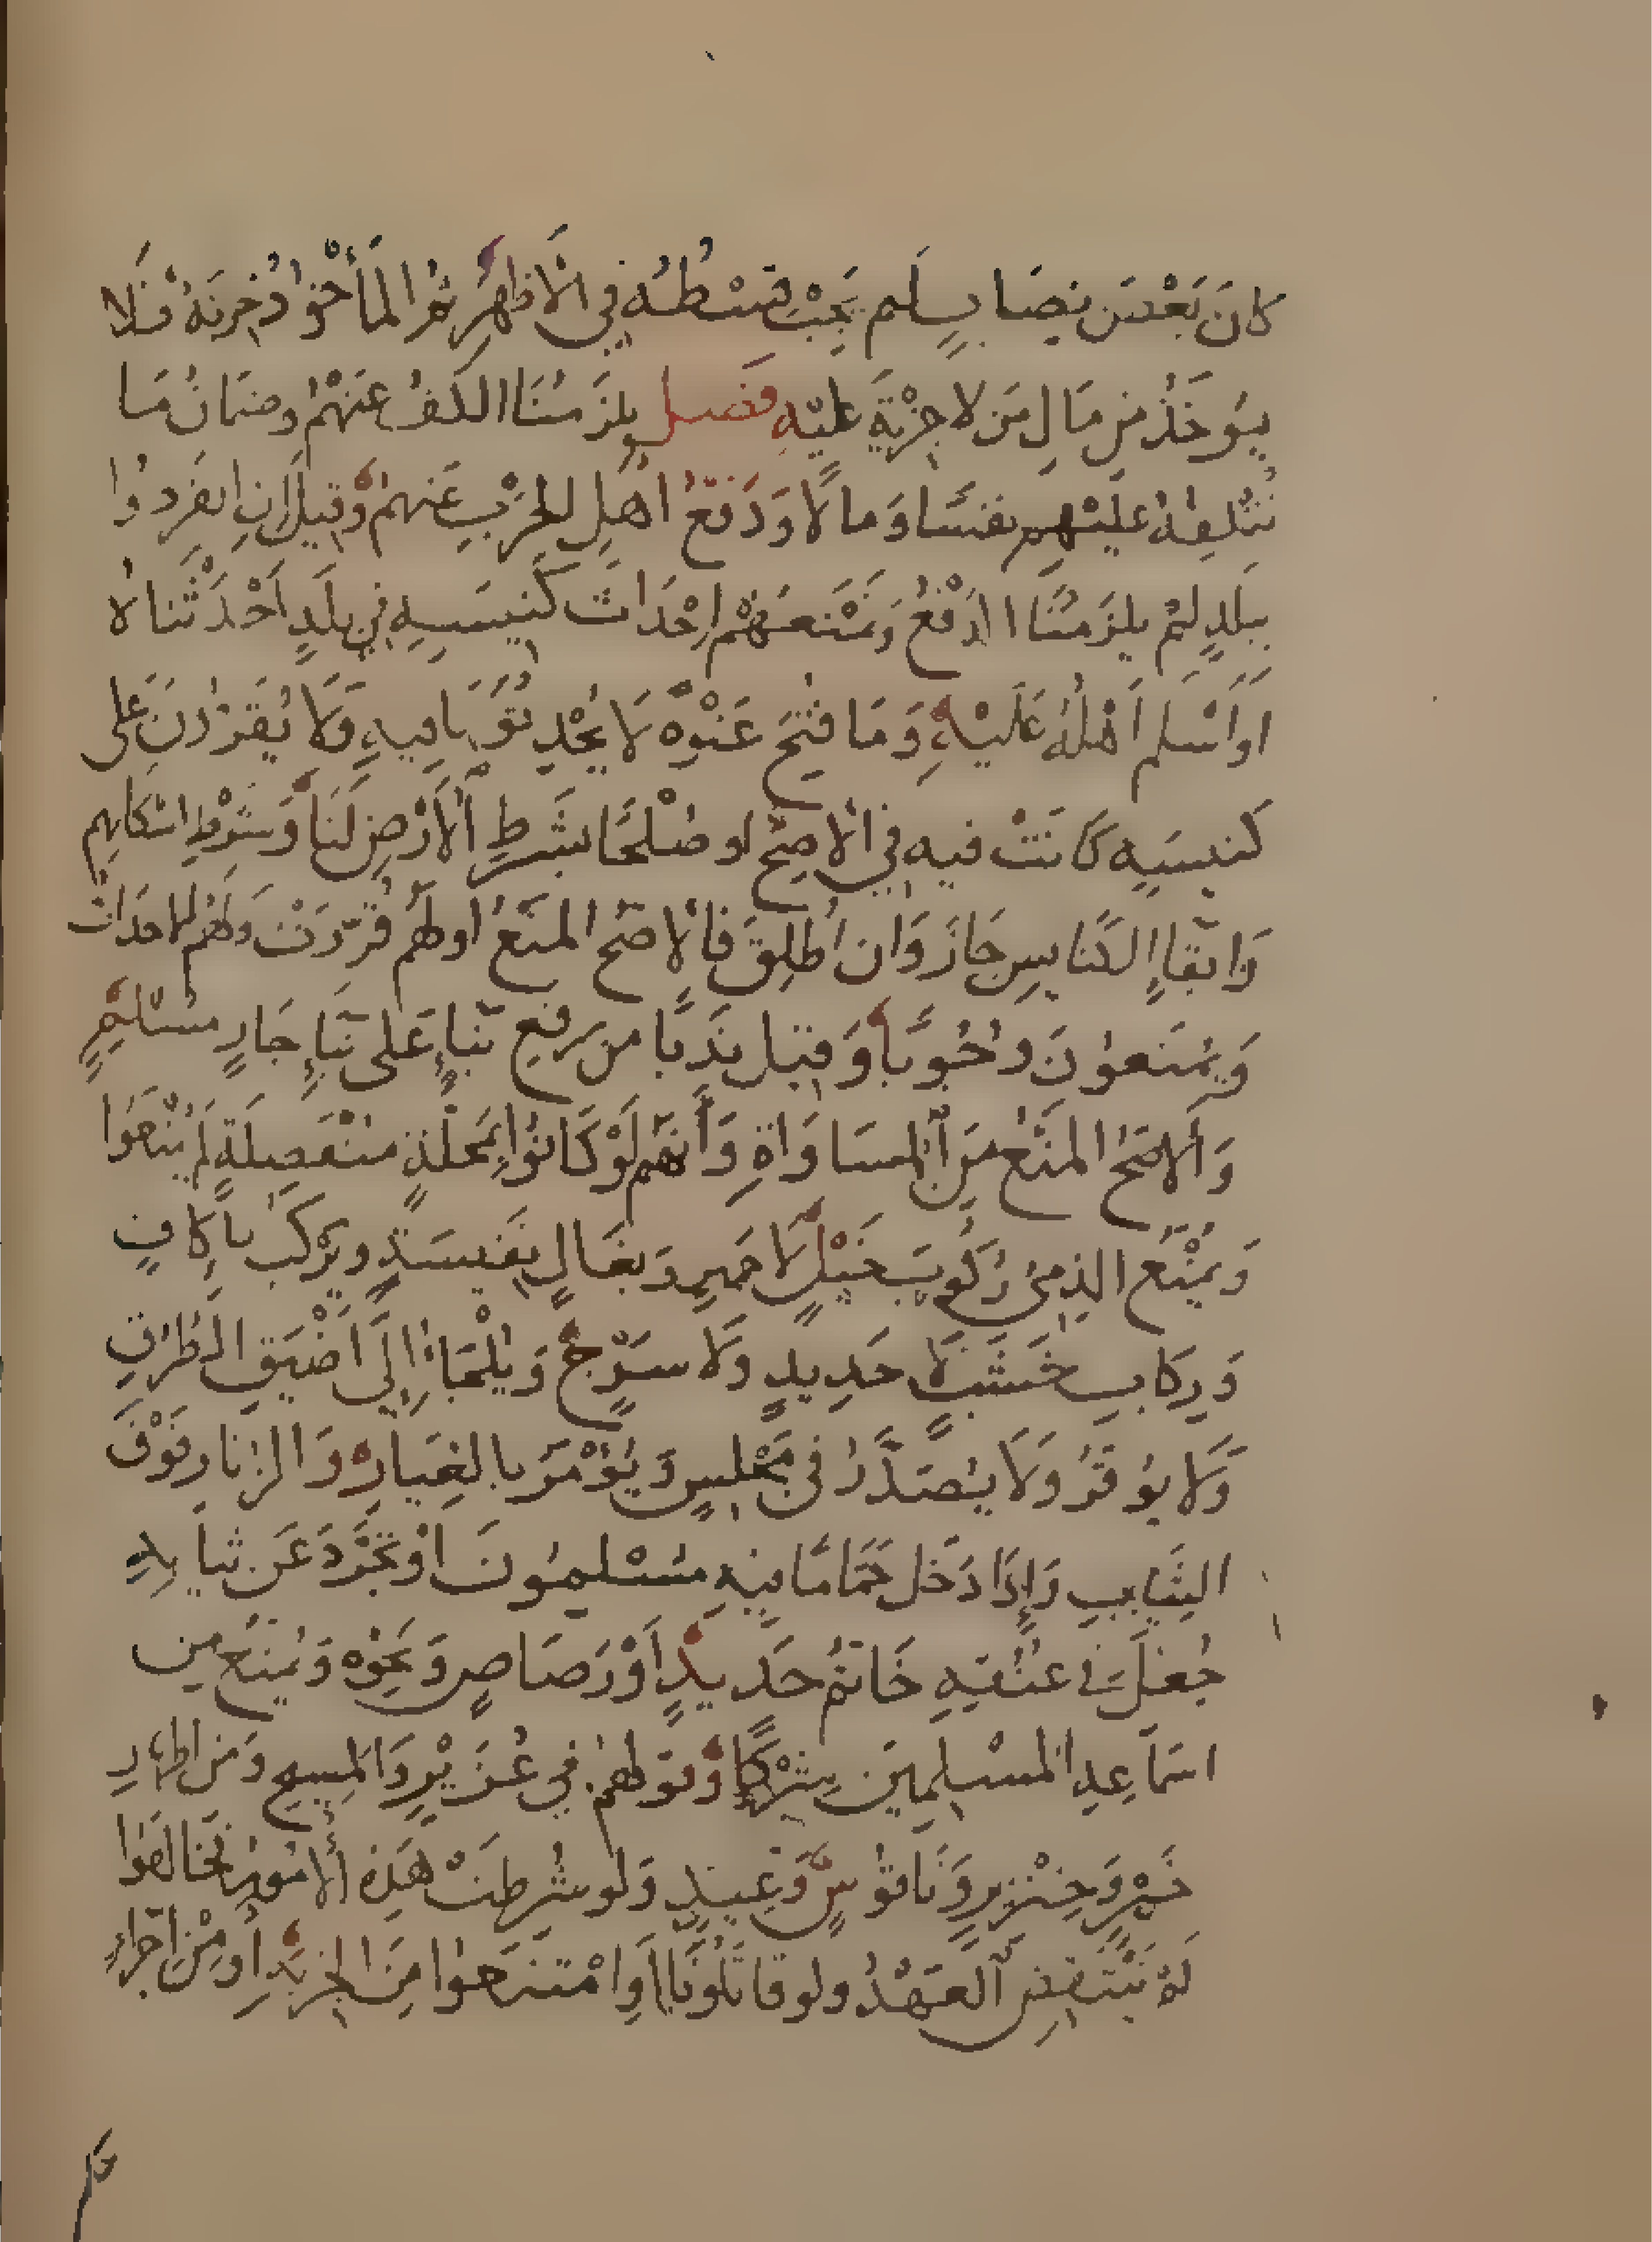 كانَ بَعْضَ نِصَابٍ لَم يَجِبْ قِسْطُهُ في الأَظهَرِ ثُمَّ المَأْخُوذُ جزيَةٌ فَلَا
يُوخَذُ مِن مَالِ مَن لا جِزْيَةَ عليْهِ فصل يلزَمُنَا الكَفُّ عَنهُمْ وضمَانُ مَا
نُتلِفهُ علَيْهِم نفسًا وَمالًا وَدَفعُ اهلِ الحَرْبِ عَنهم وَقيلَ إنِ انفَردُوا
ببلَدٍ لمْ يلزَمْنَا الدَفْعُ وَنَمْنَعهُمْ إحْدَاثَ كَنيسَةٍ في بلَدٍ أَحْدَثْناهُ
اوأَسْلم أَهْلُهُ عَلَيْهِ وَمَا فُتحَ عَنْوَةً لَا يُحْدِثُونَهَا فيهِ وَلَا يُقَرّونَ على
كنيسَةٍ كَانَتْ فيهِ في الأصَحّ او صُلْحًا بشَرطِ الأَرْضِ لَنَا وَشَرْطِ اسْكانهم
وَابقاءِ الكَنايسِ جَازَ وَان أُطلِقَ فَالأصَحّ المَنعُ اولهُم قُرِّرَتْ وَلهُم الاحدَاث
وَيُمْنَعونَ وجُوبًا وَقيل نَدبًا من رفعِ بنَاءٍ على بنَاءِ جَارٍ مُسْلِمٍ
وَالأصَحّ المَنْعُ مِنَ المسَاوَاةِ وَأَنهُم لَوْ كَانُوا بمَحَلَّةٍ منْفَصِلَةٍ لَم يُمْنَعُوا
وَيُمْنَعُ الذِمِيُّ رُكُوبَ خَيْلٍ لَا حَمِيرٍ وَبغَالٍ نفيسَةٍ ويَرْكَبُ باكَافٍ
وَرِكابِ خَشَبٍ لَا حَدِيدٍ وَلَا سَرْجٍ وَيُلْجَأُ إِلَى أَضْيَقِ الطُرُقِ
وَلَا يُوقَّرُ وَلَا يُصَدَّرُ في مَجْلِسٍ وَيُؤْمَرُ بالغِيَارِ وَالزنارِ فَوْقَ
الثِيَابِ وَإِذَا دَخَل حَمَّامًا فيهِ مُسْلمُونَ أَوْ تَجَرَّدَ عَن ثيابِهِ
جُعلَ في عُنُقِهِ خَاتمُ حَدِيدٍ أَوْ رَصَاصٍ وَنَحْوِهِ وَيُمنَعُ مِن
اسمَاعِهِ المُسْلِمِينَ شِرْكًا وَقَولهُم في عُزَيْرٍ وَالمَسِيحِ وَمن اظهارِ
خَمْرٍ وَخِنْزِيرٍ وَنَاقُوسٍ وَعِيدٍ وَلَو شُرِطَتْ هَذِهِ الأُمُورُ فخَالفُوا
لَمْ يَنْتَقِضِ العَهْدُ ولو قاتَلُونَا أَوِامْتَنَعوُا مِنَ الجزيَةِ أَو مِنْ إجْراءِ